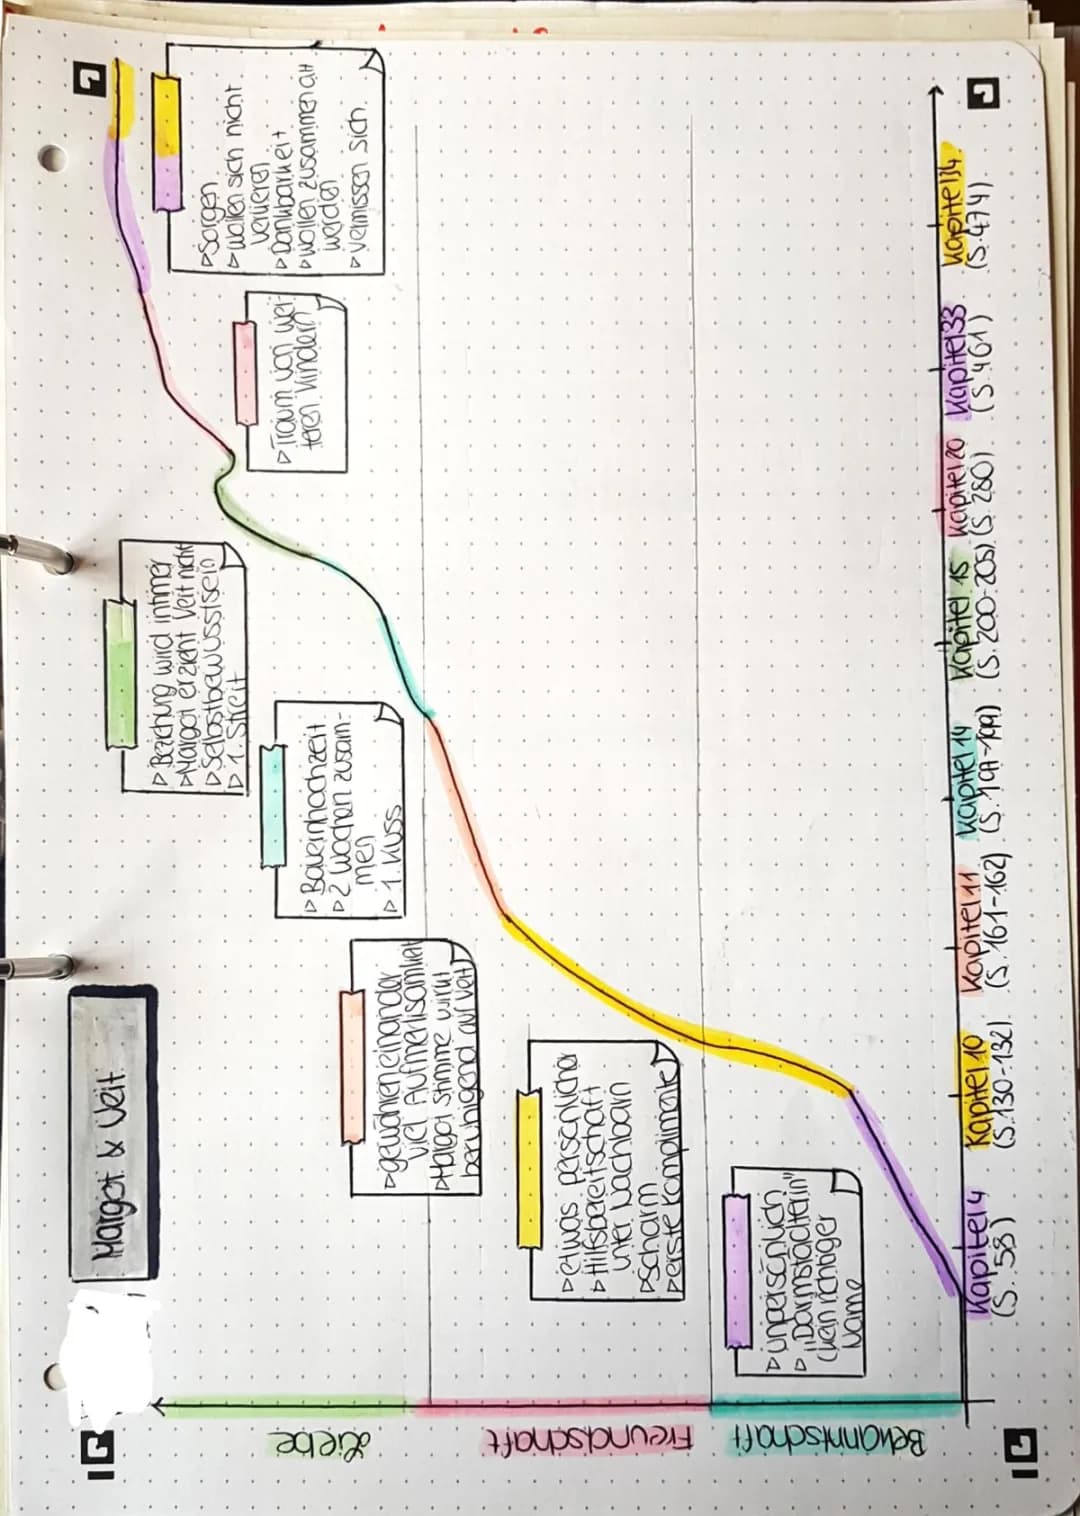 Margot & Veit
Liebe
Freundschaft
Bekanntschaft
▷ unpersönlich
▷ "Darmstädterin"
(kein richtiger
Name
▷ etwas persönlicher
▷ Hilfsbereitschaft
unter Nachbarn
▷ Scharm
▷ erste Komplimente
▷ gewöhnen einander
viel Aufmerksamkeit
▷ Margot stimme wirkt
beruhigend auf Veit
▷ Bauernhochzeit
▷ 2 Wochen zusam-
men
▷ 1. Kuss
▷ Beziehung wird intimer
▷ Margot erzieht Veit nicht
▷ Selbstbewusstsein
▷ 1. Streit
▷ Traum von wei-
teren Kindern
▷ Sorgen
▷ wollen sich nicht
verlieren
▷ Dankbarkeit
▷ wollen zusammen alt
werden
▷ vermissen sich
Kapitel 4
(S. 58)
Kapitel 10
(S. 130-132)
Kapitel 11
(S. 161-162)
Kapitel 14
(S. 197-199)
Kapitel 15
(S. 200-205)
Kapitel 20
(S. 280)
Kapitel 33
(S. 461)
Kapitel 34
(S. 474)